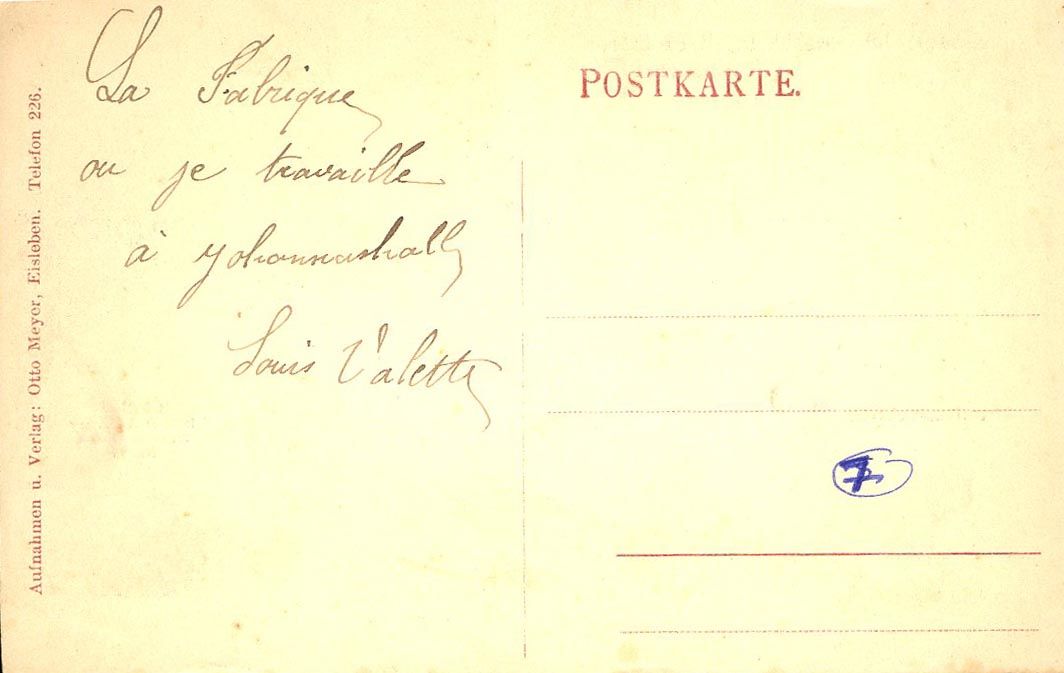 La Fabrique
ou je travaille
à Yohannashall
Louis Valette
POSTKARTE.
7
Aufnahmen u. Verlag: Otto Meyer, Eisleben. Telefon 226.